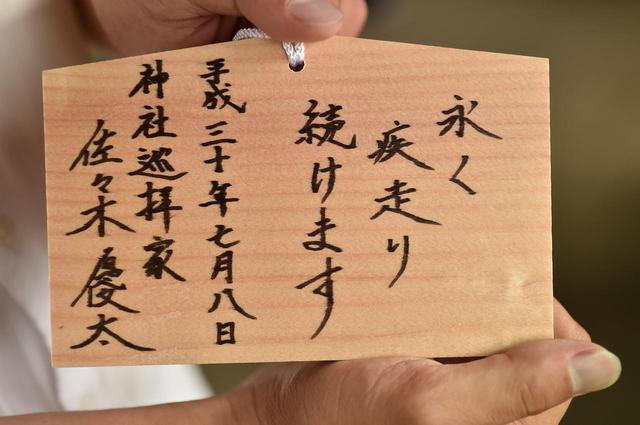 永く
疾走り
続けます
平成三十年七月八日
神社巡拝家
佐々木優太